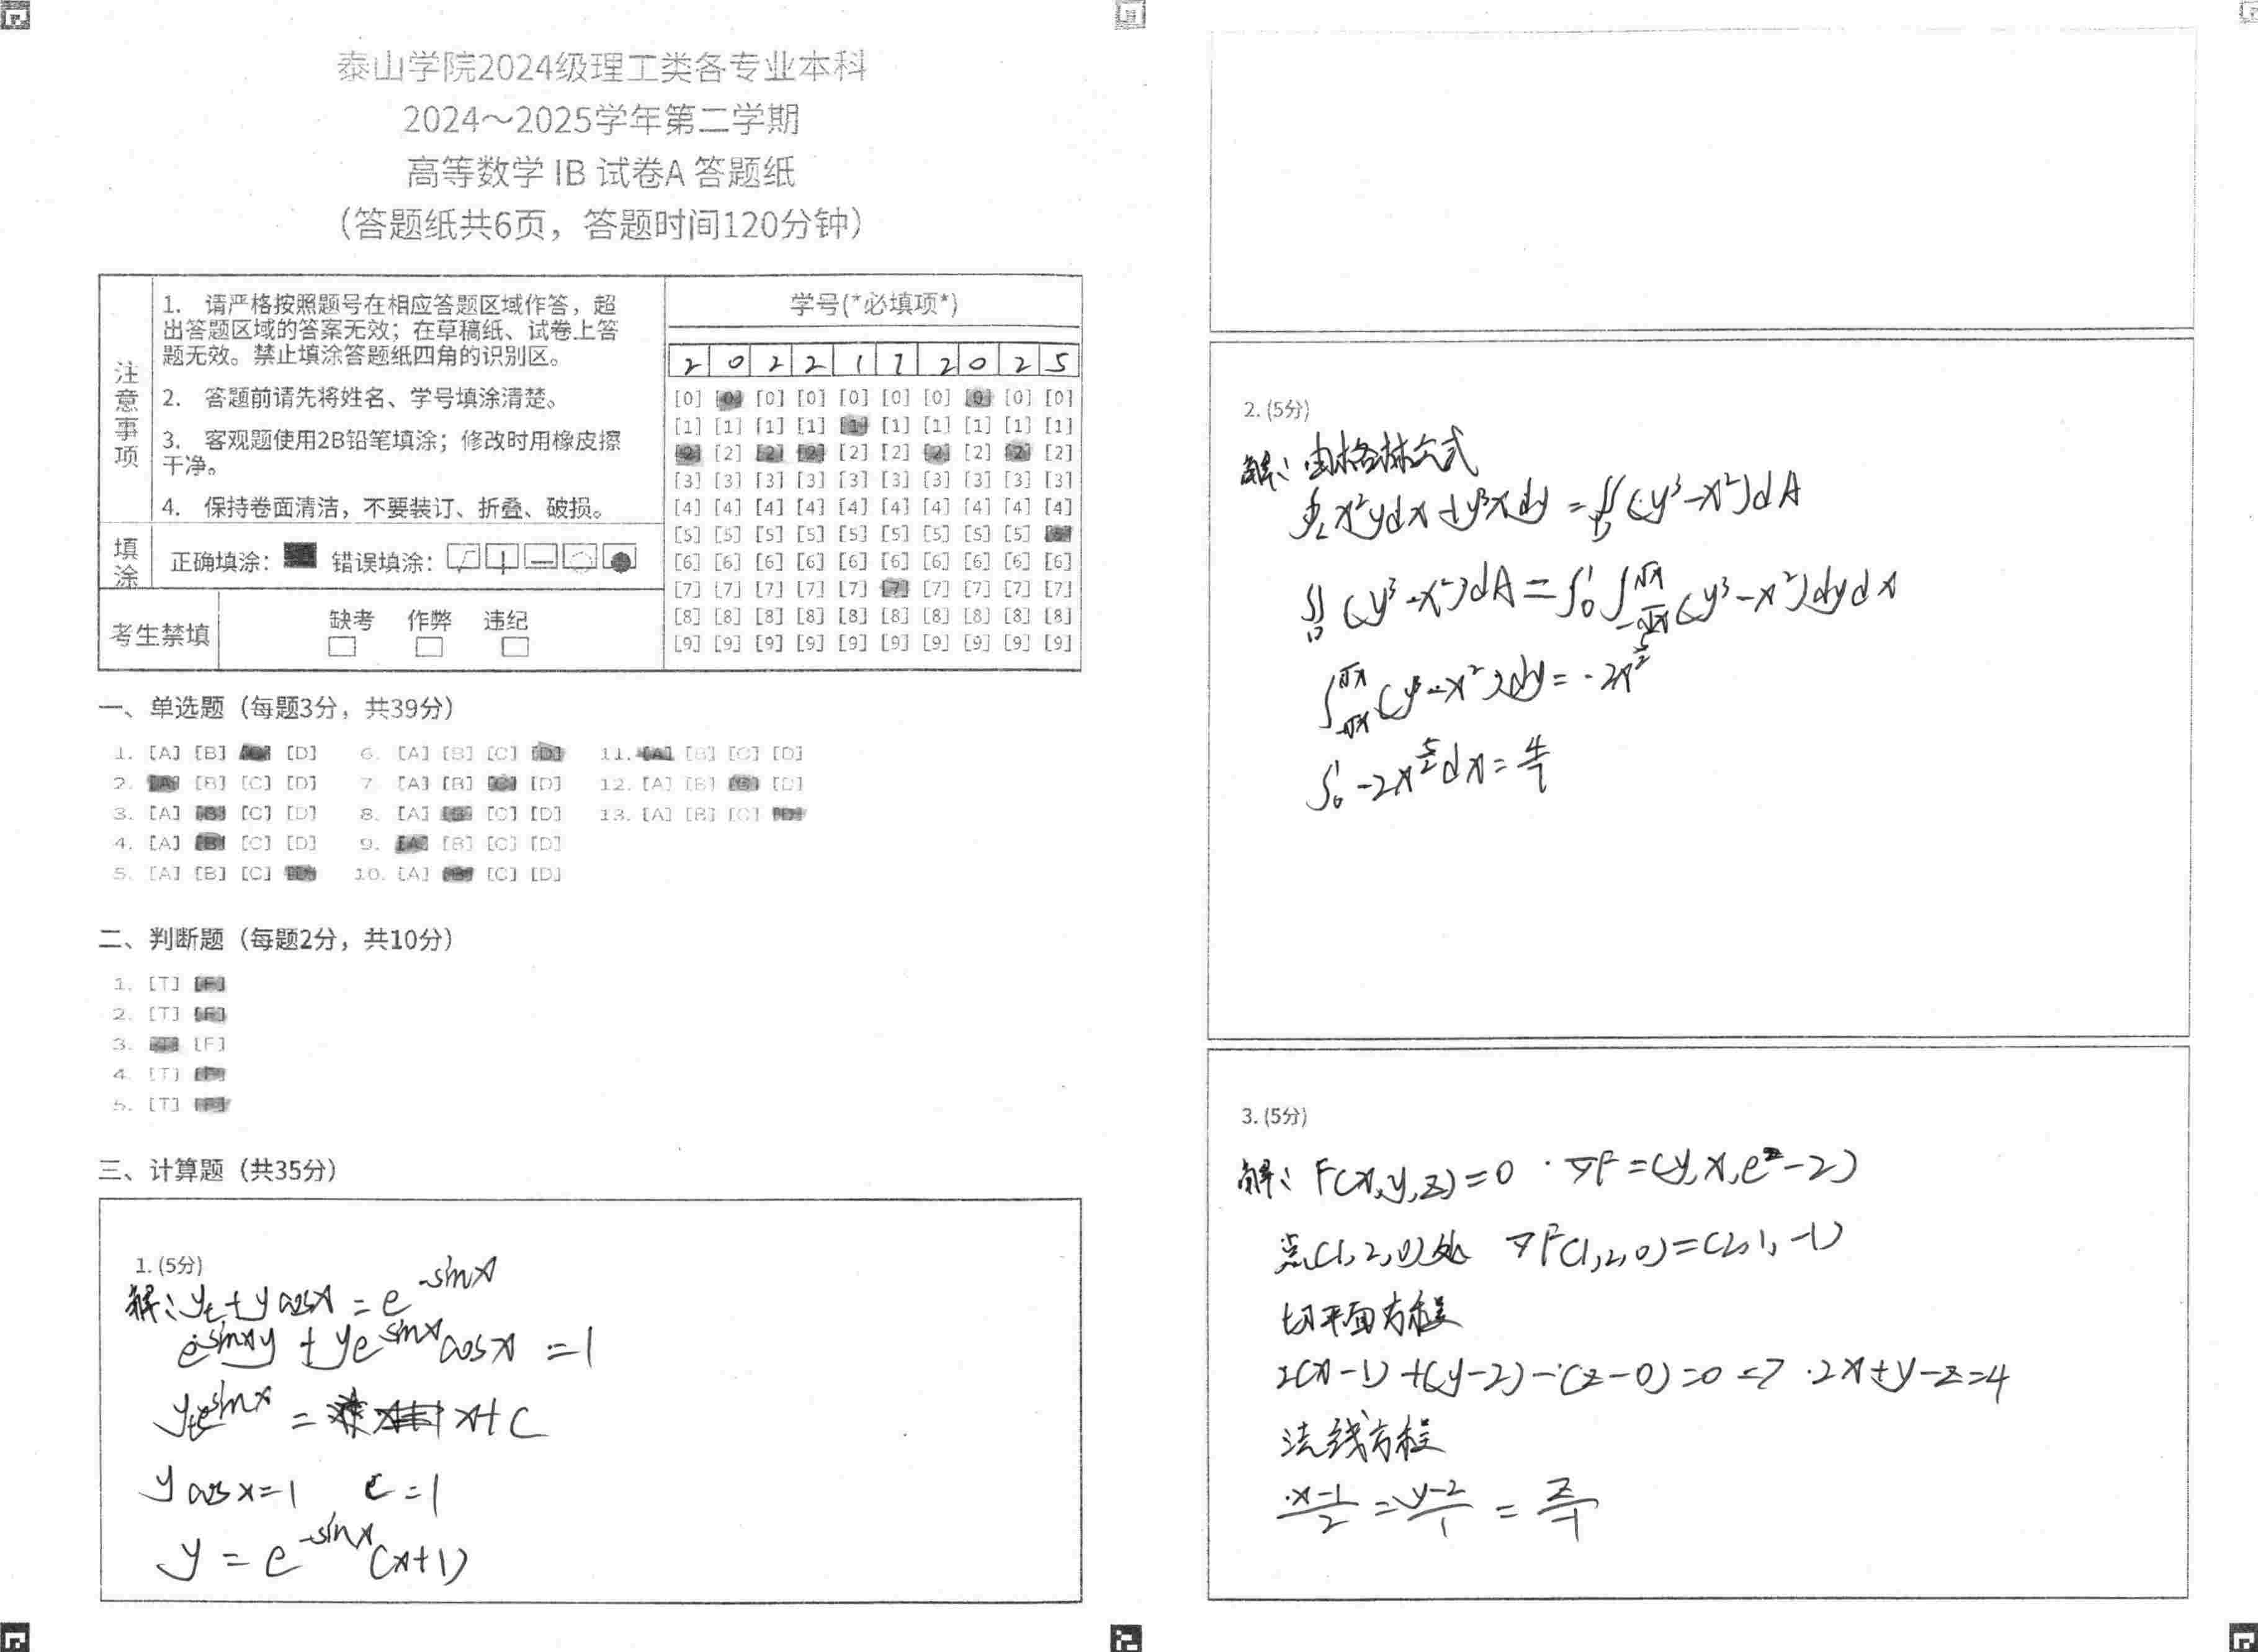 泰山学院2024级理工类各专业本科
2024～2025学年第二学期
高等数学 IB 试卷A 答题纸
（答题纸共6页，答题时间120分钟）
注意事项
1. 请严格按照题号在相应答题区域作答，超
出答题区域的答案无效；在草稿纸、试卷上答
题无效。禁止填涂答题纸四角的识别区。
2. 答题前请先将姓名、学号填涂清楚。
3. 客观题使用2B铅笔填涂；修改时用橡皮擦
干净。
4. 保持卷面清洁，不要装订、折叠、破损。
填涂 正确填涂： 错误填涂：
考生禁填 缺考 作弊 违纪
学号(*必填项*)
2 0 2 2 1 7 2 0 2 5
[0] [0] [0] [0] [0] [0] [0] [0] [0] [0]
[1] [1] [1] [1] [1] [1] [1] [1] [1] [1]
[2] [2] [2] [2] [2] [2] [2] [2] [2] [2]
[3] [3] [3] [3] [3] [3] [3] [3] [3] [3]
[4] [4] [4] [4] [4] [4] [4] [4] [4] [4]
[5] [5] [5] [5] [5] [5] [5] [5] [5]
[6] [6] [6] [6] [6] [6] [6] [6] [6] [6]
[7] [7] [7] [7] [7] [7] [7] [7] [7] [7]
[8] [8] [8] [8] [8] [8] [8] [8] [8] [8]
[9] [9] [9] [9] [9] [9] [9] [9] [9] [9]
一、单选题（每题3分，共39分）
1. [A] [B] [C] [D] 6. [A] [B] [C] [D] 11. [A] [B] [C] [D]
2. [A] [B] [C] [D] 7. [A] [B] [C] [D] 12. [A] [B] [C] [D]
3. [A] [B] [C] [D] 8. [A] [B] [C] [D] 13. [A] [B] [C] [D]
4. [A] [B] [C] [D] 9. [A] [B] [C] [D]
5. [A] [B] [C] [D] 10. [A] [B] [C] [D]
二、判断题（每题2分，共10分）
1. [T] [F]
2. [T] [F]
3. [T] [F]
4. [T] [F]
5. [T] [F]
三、计算题（共35分）
1. (5分)
解： y_t + y cos x = e^{-sin x}
e^{sin x}y + ye^{sin x} cos x = 1
ye^{sin x} = x + C
y cos x = 1 c = 1
y = e^{-sin x}(x+1)
2. (5分)
解：由格林公式
∮_L x²ydx + y³xdy = ∬_D (y³-x²)dA
∬_D (y³-x²)dA = ∫₀¹ ∫_{-√x}^{√x} (y³-x²)dydx
∫_{-√x}^{√x} (y³-x²)dy = -2x^{5/2}
∫₀¹ -2x^{5/2}dx = 4/7
3. (5分)
解： F(x,y,z)=0 ∇F=(y,x,e^z-2)
点(1,2,0)处 ∇F(1,2,0)=(2,1,-1)
切平面方程
2(x-1)+(y-2)-(z-0)=0 => 2x+y-z=4
法线方程
(x-1)/2 = (y-2)/1 = z/-1